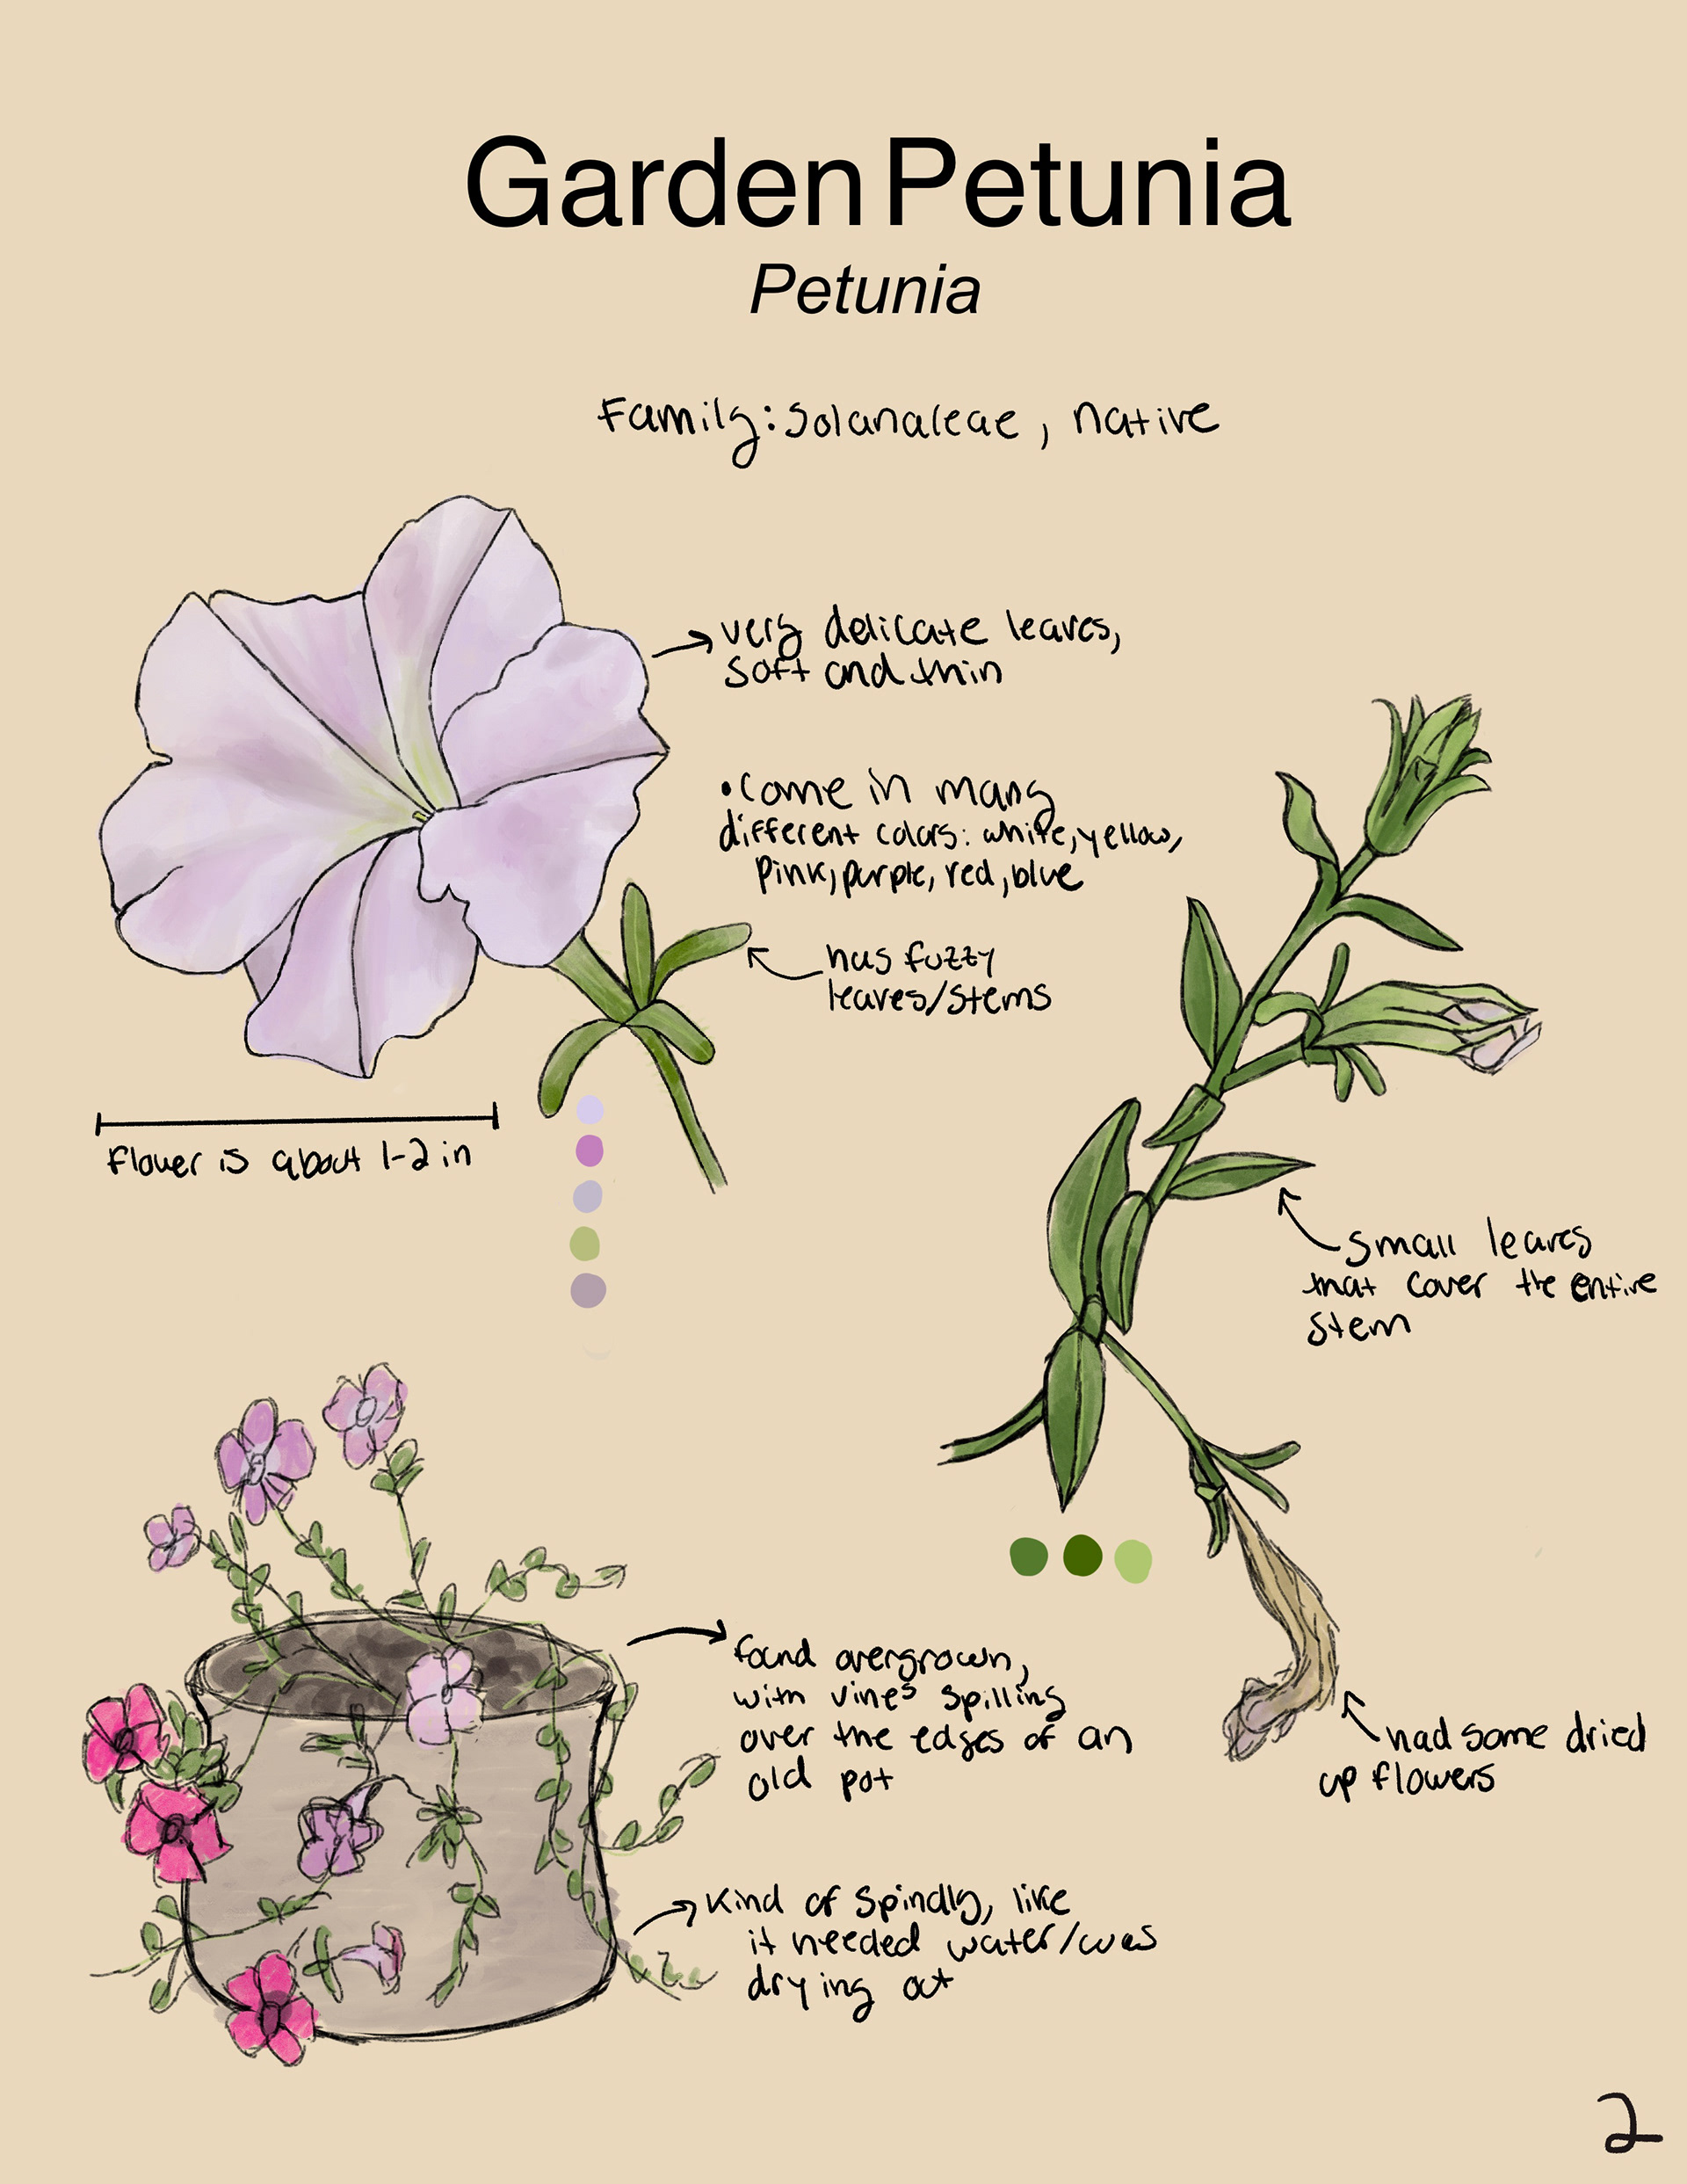 Garden Petunia
Petunia
Family: Solanaleae, native
very delicate leaves,
soft and thin
• Come in many
different colors: white, yellow,
pink, purple, red, blue
has fuzzy
leaves/stems
flower is about 1-2 in
small leaves
that cover the entire
stem
found overgrown,
with vines spilling
over the edges of an
old pot
had some dried
up flowers
Kind of spindly, like
it needed water/was
drying out
2